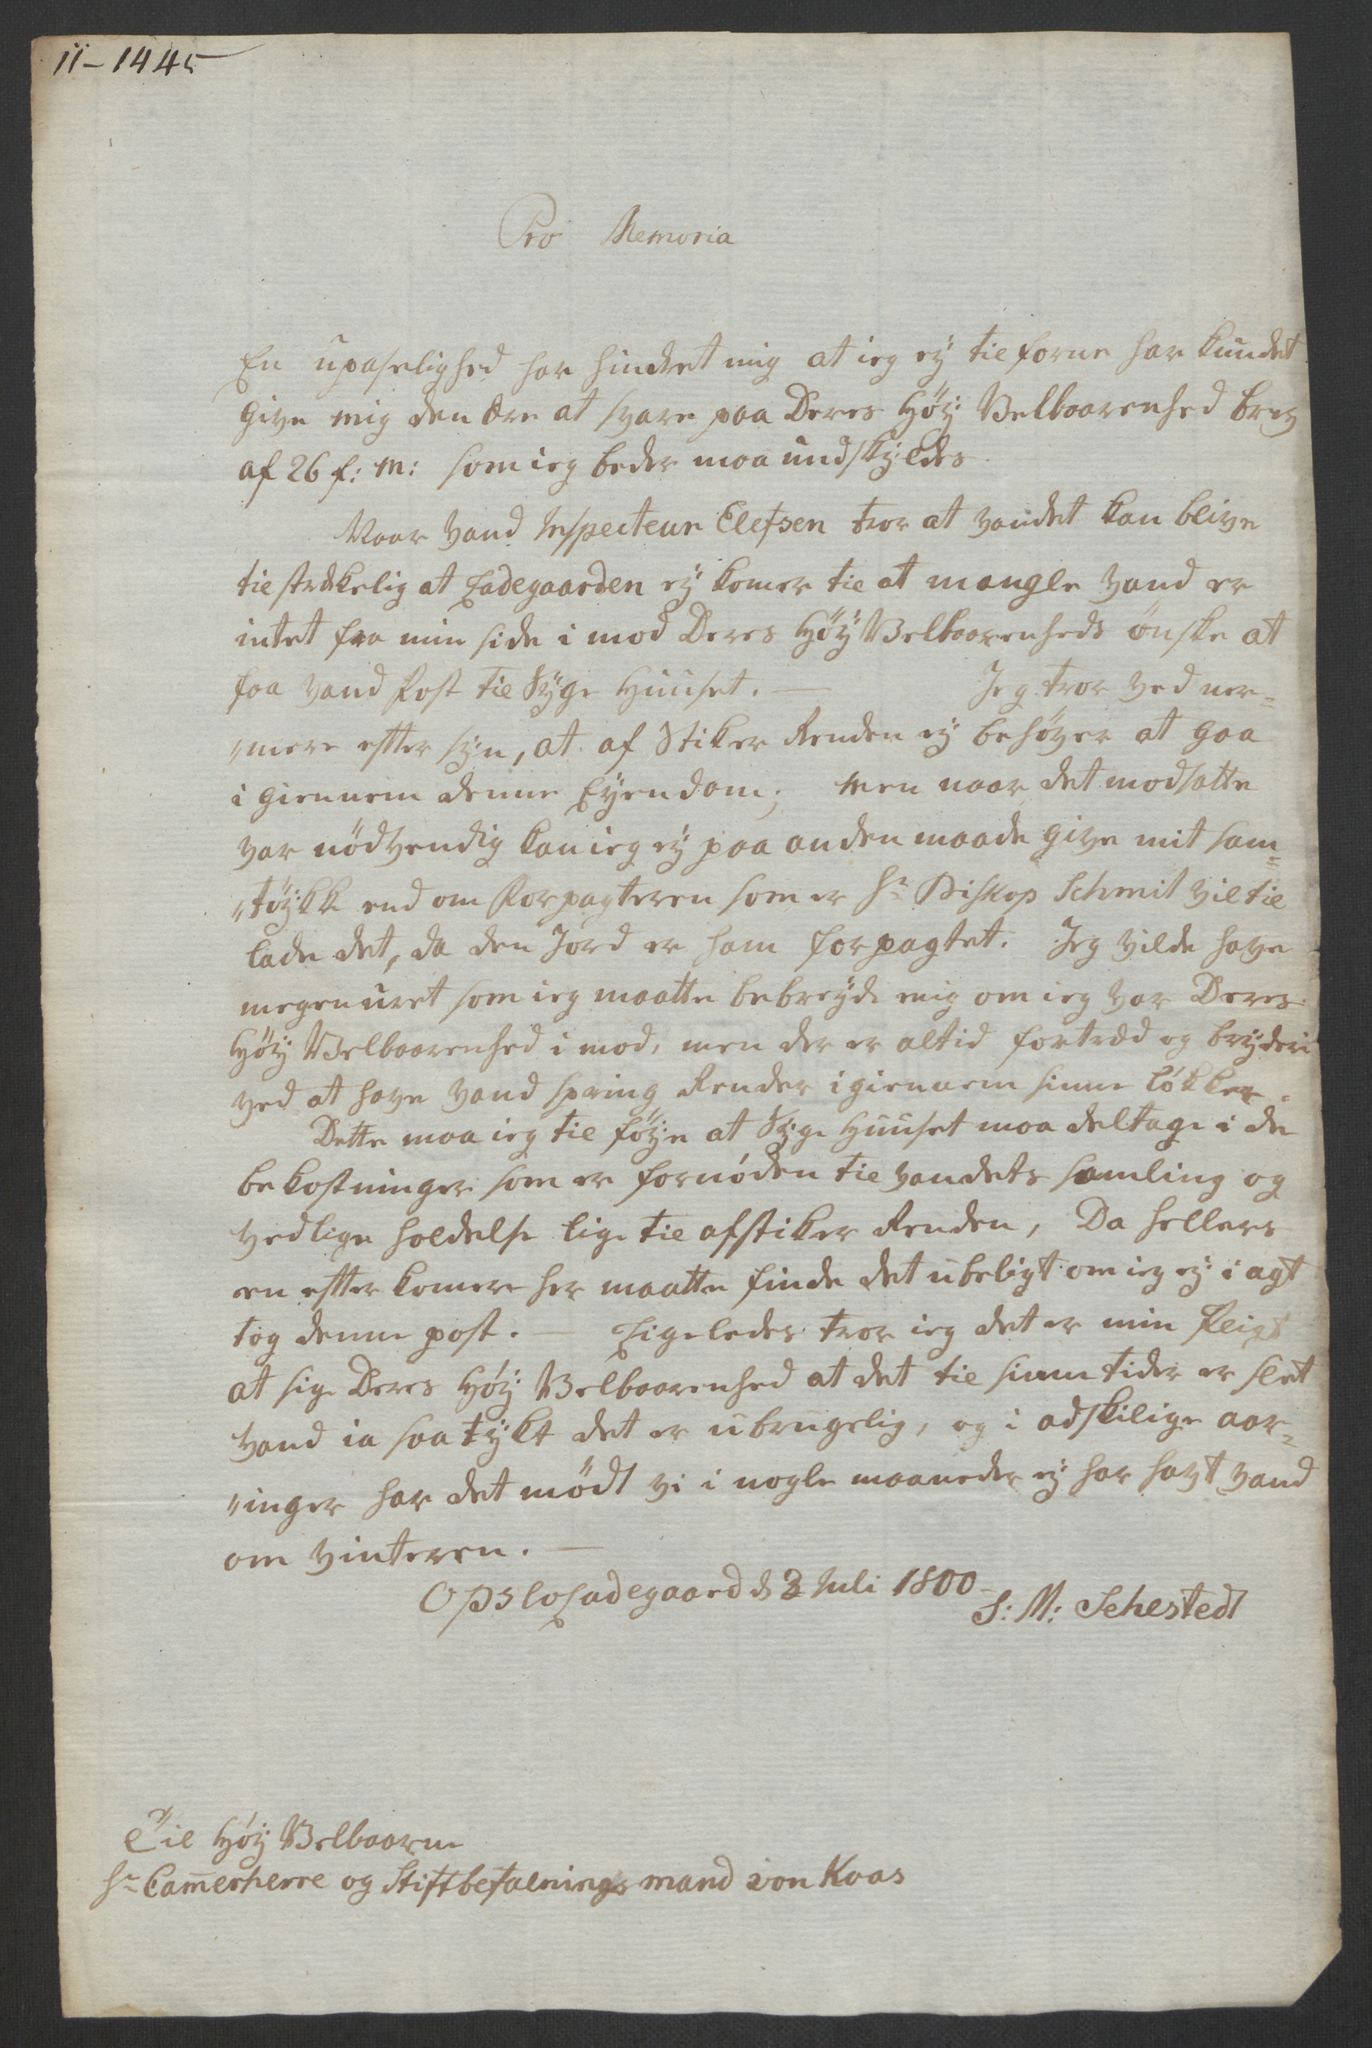 11-1445
Pro Memoria
En upaselighed har hindret mig at ieg ey tilforne har kundet
give mig den ære at svare paa Deres Höy Velbaarenhed brev
af 26 f: m: som ieg beder maa undskyldes
Naar Vand Inspecteur Elefsen tror at vandet kan blive
tilstrækelig at Ladegaarden ey komer til at mangle vand er
intet fra min side i mod Deres Höy Velbaarenheds önske at
faa vand Post til Syge Huuset. — Jeg tror ved ner=
"mere efter syn, at af Stiker Renden ey behøver at gaa
i giennem denne Eyendom; Men naar det modsatte
var nödvendig kan ieg ey paa anden maade give mit sam=
"töykke end om Forpagteren som er Hr Biskop Schmit vil til
lade det, da den Jord er ham forpagtet. Jeg vilde have
megen uret som ieg maatte bebreyde mig om ieg var Deres
Höy Velbaarenhed i mod, men der er altid fortræd og bryderi
ved at have vand spring Render igiennem sinne løkker.
Dette maa ieg til föye at Syge Huuset maa deltage i de
bekostninger som er fornøden til vandets samling og
vedlige holdelse lige til afstiker Renden, Da hellers
en efterkomere her maatte finde det ubeligt om ieg ey i agt
tog denne post. — Ligeledes tror ieg det er min Pligt
at sige Deres Höy Velbaarenhed at det til sinne tider er slet
vand ia saa tykt det er ubrugelig, og i adskilige aar=
"inger har det mödt vi i nogle maaneder ey har havt vand
om vinteren. —
Opslo Ladegaard d 2 Juli 1800
S: M: Sehestedt
Til Höy Velbaarne
Hr Camerherre og Stiftbefalnings mand von Kaas